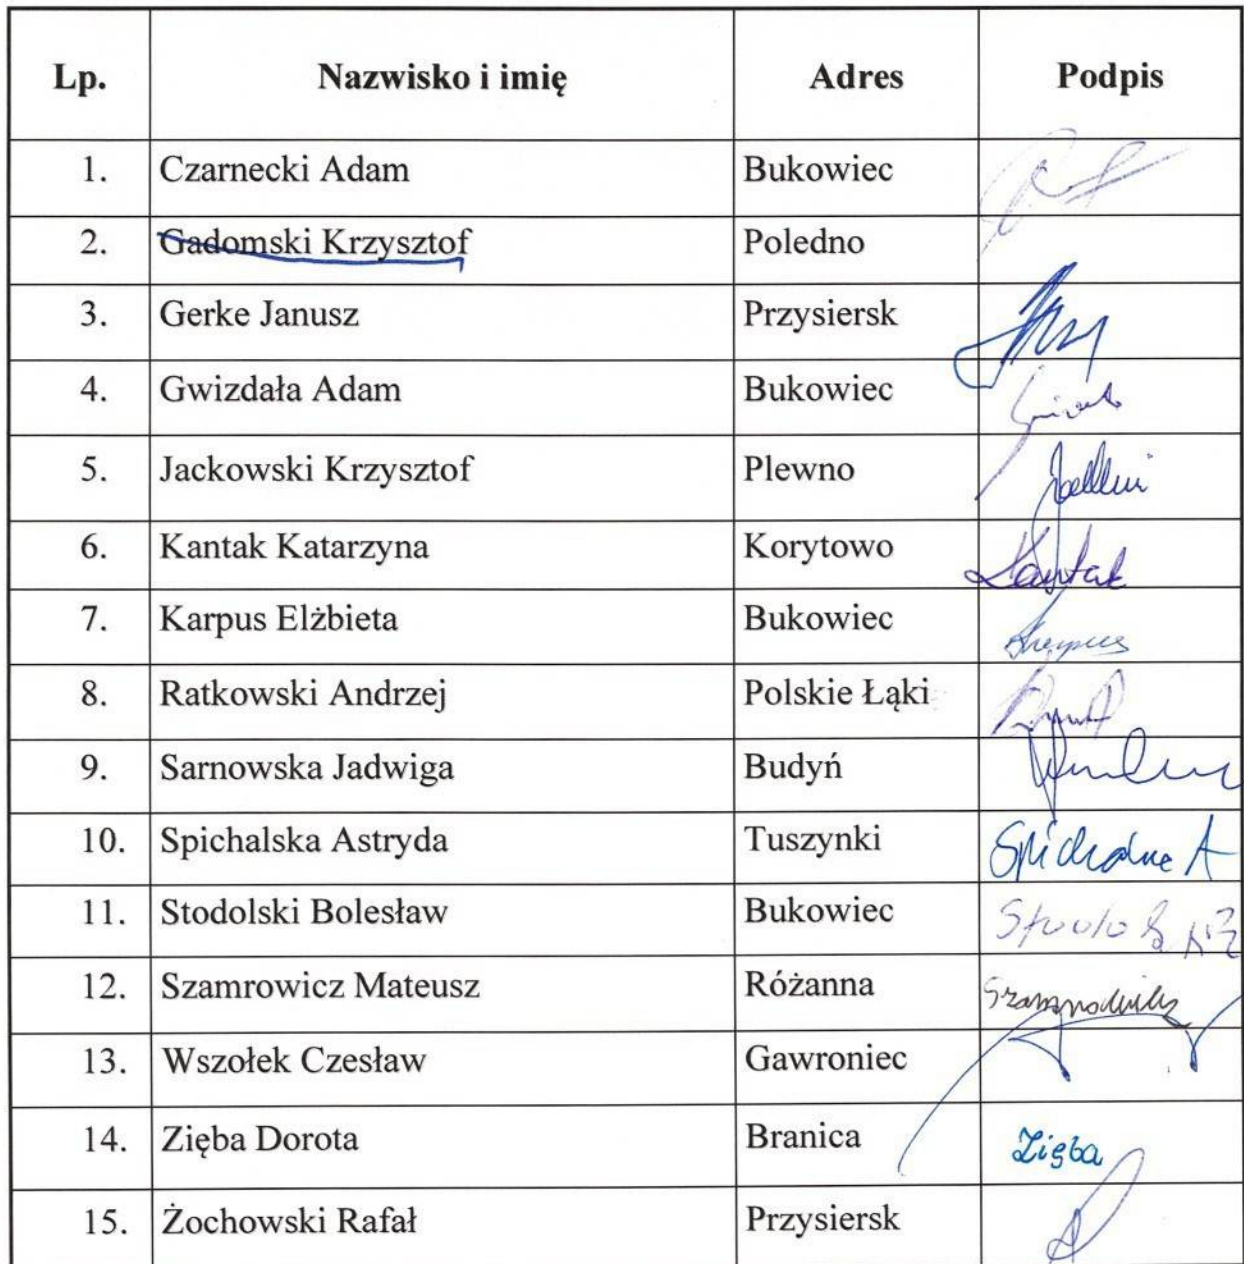 Lp. Nazwisko i imię Adres Podpis
1. Czarnecki Adam Bukowiec
2. Gadomski Krzysztof Poledno
3. Gerke Janusz Przysiersk
4. Gwizdała Adam Bukowiec
5. Jackowski Krzysztof Plewno
6. Kantak Katarzyna Korytowo Kantak
7. Karpus Elżbieta Bukowiec
8. Ratkowski Andrzej Polskie Łąki
9. Sarnowska Jadwiga Budyń
10. Spichalska Astryda Tuszynki
11. Stodolski Bolesław Bukowiec
12. Szamrowicz Mateusz Różanna
13. Wszołek Czesław Gawroniec
14. Zięba Dorota Branica Zięba
15. Żochowski Rafał Przysiersk